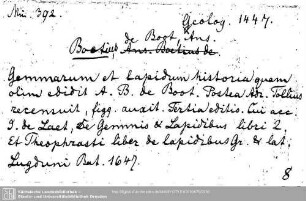 Min. 392.
Geolog. 1447.
de Boot, Ans.
Boetius, Ans. Boetius de
Gemmarum et Lapidum historia quam
olim edidit A. B. de Boot. Postea Adr. Tollius
recensuit, figg. auxit. Tertia editio. Cui acc.
J. de Laet, De Gemmis & Lapidibus libri 2
Et Theophrasti liber de lapidibus Gr. & lat.
Lugduni Bat. 1647.
8